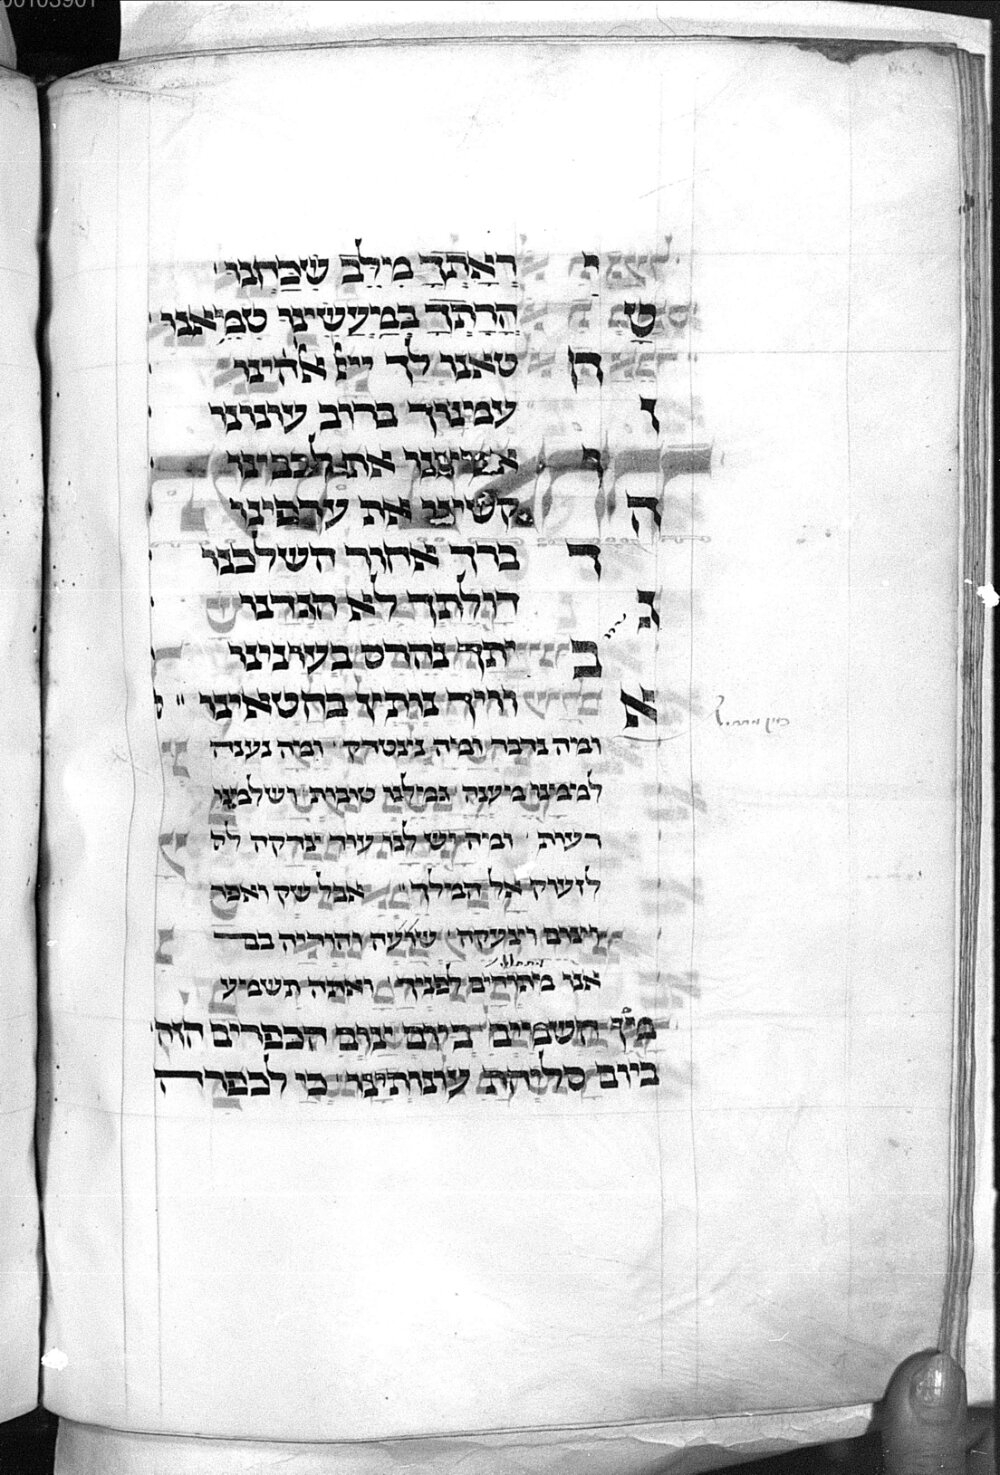 י רְאָתְךָ מִלֵּב שָׁכַחְנוּ
ט הֳרָתְךָ בְמַעֲשֵׂינוּ טִמֵּאנוּ
ח טאנו לך ייי אלהינו
ז עמינוך ברוב עונינו
ו אימצנו את לבבינו
ה קשינו את ערפינו
ד ברך אחור השלכנו
ג דולתך לא הגדנו
ב יתך נהרס בעונינו
א וויך נותיך בחטאינו
ומה נדבר ומה נצטדק ומה נענה
למבינו מיענה גמלנו טובות ושלמנו
רעות ומה יש לנו עוד צדקה לה
לזעוק אל המלך אבל שק ואפר
וצום וצעקה שועה והודיה בם
אנו מקדמים לפניך ואתה תשמע
מן השמים ביום צום הכפרים הזה
ביום סליחת עונותינו כי לכפרה